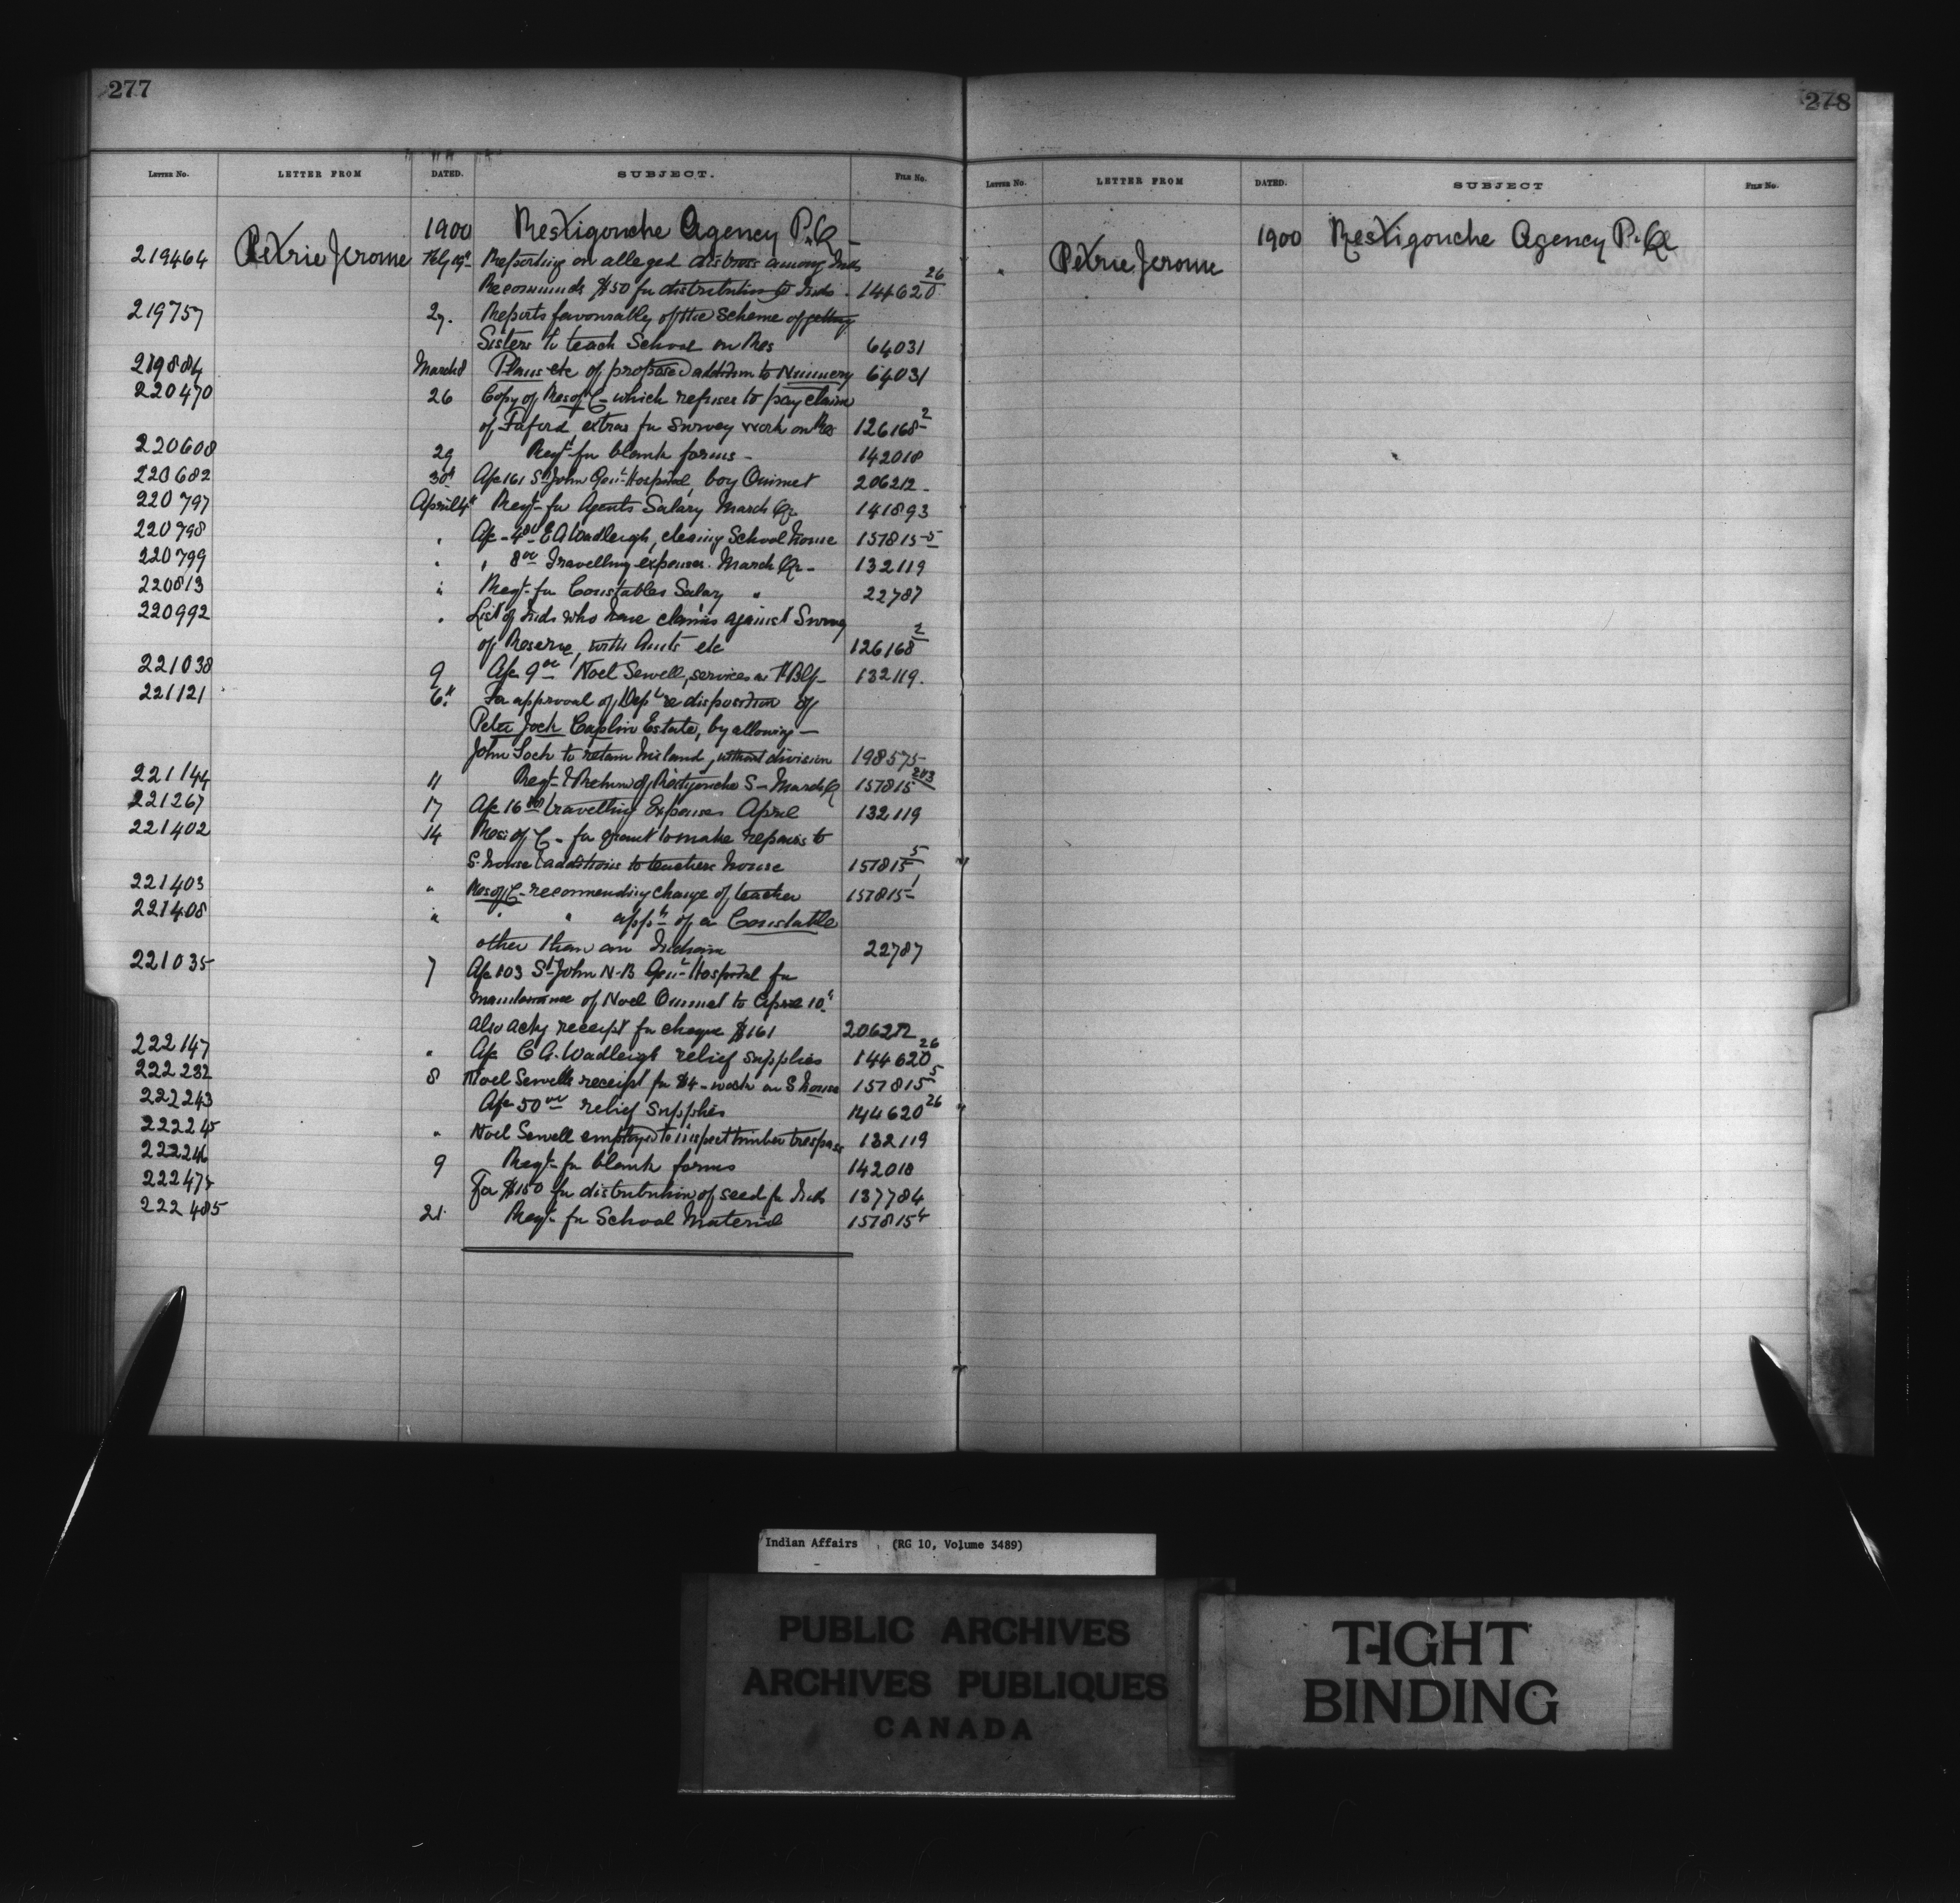 277
Letter No. LETTER FROM DATED. SUBJECT. File No.
1900 Restigouche Agency P.Q -
219464 Petrie Jerome Feby 19th Reporting on alleged distress among Inds
Recommends $50 for distribution to Inds. 144620 26
219757 27. Reports favourably of the scheme of getting
Sisters to teach School on Res 64031
219884 March 8 Plans etc of proposed addition to Nunnery 64031
220470 26 Copy of Res of C- which refuses to pay claim
of Faford extras for Survey work on Res 126168 2
220608 29 Reqt for blank forms - 142018
220682 30th A/c 161 St John Genl Hospital, boy Ouimet 206212 -
220797 April 4th Reqt- for Agents Salary March Qr 141893
220798 " A/c - 4 00 E A Wadleigh, cleaning School house 157815-5
220799 " " 8 00 Travelling expenses. March Qr - 132119
220813 " Reqt- for Constables Salary " 22787
220992 " List of Inds who have claims against Survey
of Reserve, with Amts etc 126168 2
221038 9 A/c 9 00 Noel Sewell, services as 132119.
221121 6th For approval of Dept re disposition of
Peter Jock Caplin Estate, by allowing -
John Jock to retain his land, without division 198575-
221144 11 Reqt- & Return of Restigouche S- March Q 157815 2&3
221267 17 A/c 16 travelling Expenses April 132119
221402 14 Res: of C - for grant to make repairs to
S. house & additions to teachers house 157815 5
221403 " Res of C- recommending change of teacher 157815-1
221408 " " " appt of a Constable
other than an Indian 22787
221035 7 A/c 103 St John N-B Genl- Hospital for
maintenance of Noel Ouimet to April 10th.
also ackg receipt for cheque $161 206212
222147 " A/c E A. Wadleigh relief supplies 144620 26
222232 8 Noel Sewells receipt for $4 - work on S house 157815 5
222243 A/c 50 relief supplies 144620 26
222245 " Noel Sewell employed to inspect timber trespass 132119
222246 9 Reqt- for blank forms 142018
222475 For $150 for distribution of seed for Inds 137784
222485 21 Reqt- for School Material 157815 4
278
Letter No. LETTER FROM DATED. SUBJECT File No.
1900 Restigouche Agency P.Q
Petrie Jerome
Indian Affairs (RG 10, Volume 3489)
PUBLIC ARCHIVES
ARCHIVES PUBLIQUES
CANADA
TIGHT
BINDING